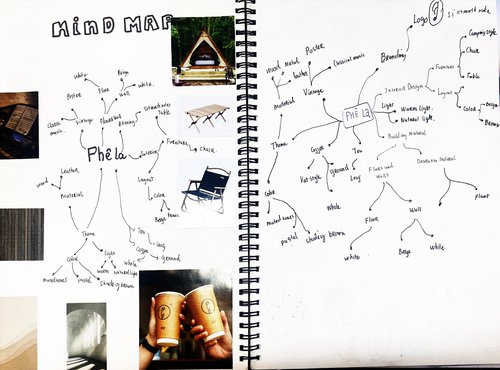 MIND MAP
white
Beige
white.
Poster
Floor
wall
Classic music.
vintage
Floor & wall
Table
Furniture
chair.
Phê la
Interior
Leather
wood
Material
Layout
Color
Beige
Brown
Theme
Tea
long
Coffee
ground
whole
Light
warm
natural light
Color
Muted tones
pastel
shade of brown
Logo
Branding
Poster
wood
metal
leather
Classical music
Vintage
Material
Theme
PHÊ LA
Interior Design
Furniture
Camping style
Chair
Table
Layout
Color
Beige
Brown
Light
Warm light.
Natural light.
Building Material
Coffee
Viet style
ground
Whole
Tea
Long
Floor and
Walls
Decorating Material
plant
Floor
white
Wall
Beige
White
Color
Muted tones
pastel
shade of brown